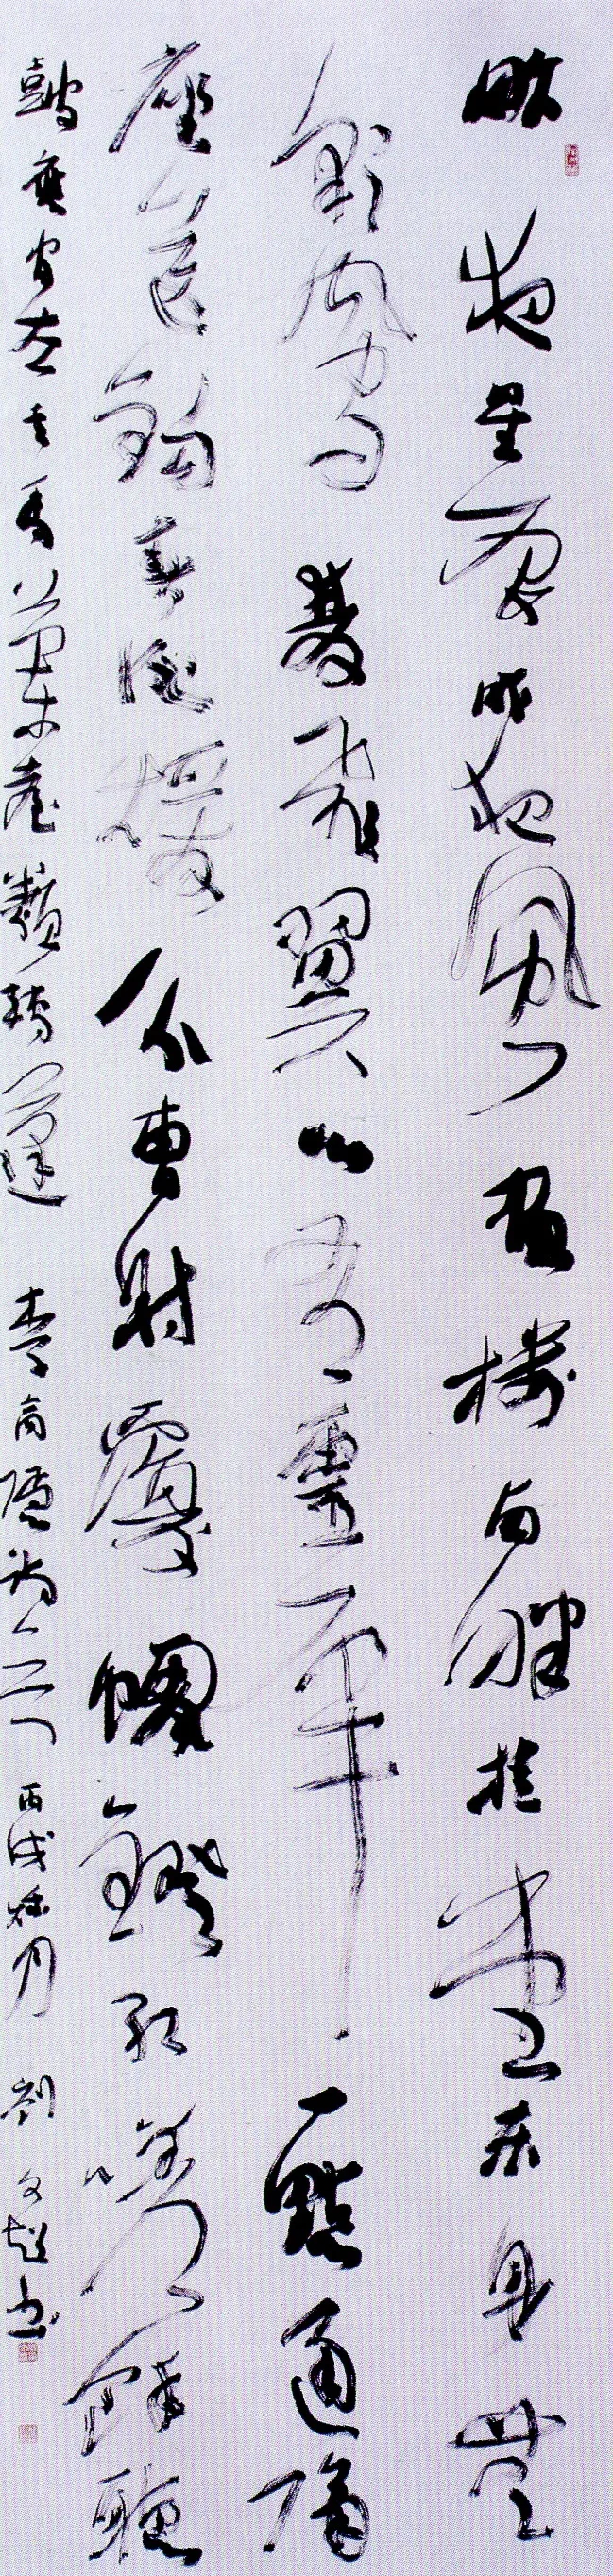 昨夜星辰昨夜風畫樓西畔桂堂东身無
彩鳳雙飛翼心有靈犀一點通隔
座送鉤春酒煖分曹射覆蠟鐙紅嗟余聽
鼓應官去走馬蘭臺類轉蓬 李商隱 丙戌秋月 刘文超书